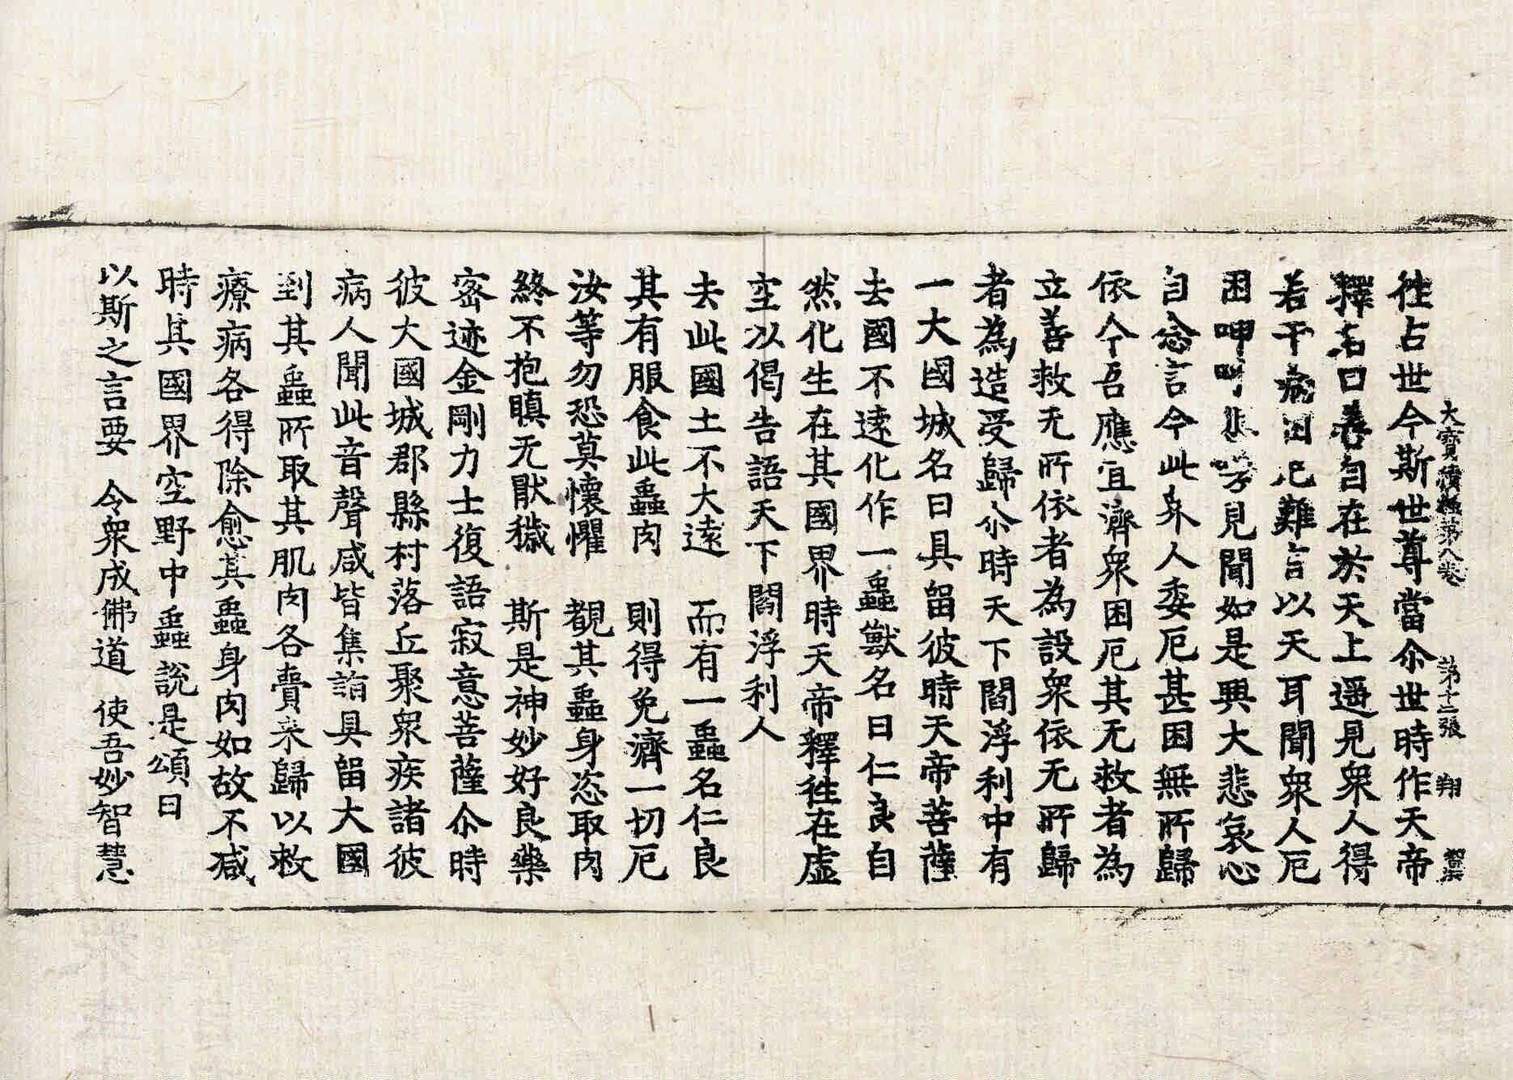 大寶積經第八卷 第十二張 翔
往古世今斯世尊當尒世時作天帝
釋名曰善自在於天上遥見衆人得
若干病困厄難言以天耳聞衆人厄
困呻呼悲見聞如是興大悲哀心
自念言今此衆人委厄甚困無所歸
依今吾應宜濟衆困厄其无救者為
立善救无所依者為設衆依无所歸
者為造受歸尒時天下閻浮利中有
一大國城名曰具留彼時天帝菩薩
去國不遠化作一蟲獸名曰仁良自
然化生在其國界時天帝釋往在虛
空以偈告語天下閻浮利人
去此國土不大遠 而有一蟲名仁良
其有服食此蟲肉 則得免濟一切厄
汝等勿恐莫懷懼 覩其蟲身恣取肉
終不抱瞋无猒穢 斯是神妙好良藥
密迹金剛力士復語寂意菩薩尒時
彼大國城郡縣村落丘聚衆疾諸彼
病人聞此音聲咸皆集詣具留大國
到其蟲所取其肌肉各賷来歸以救
療病各得除愈其蟲身肉如故不减
時其國界空野中蟲說是頌曰
以斯之言要 令衆成佛道 使吾妙智慧